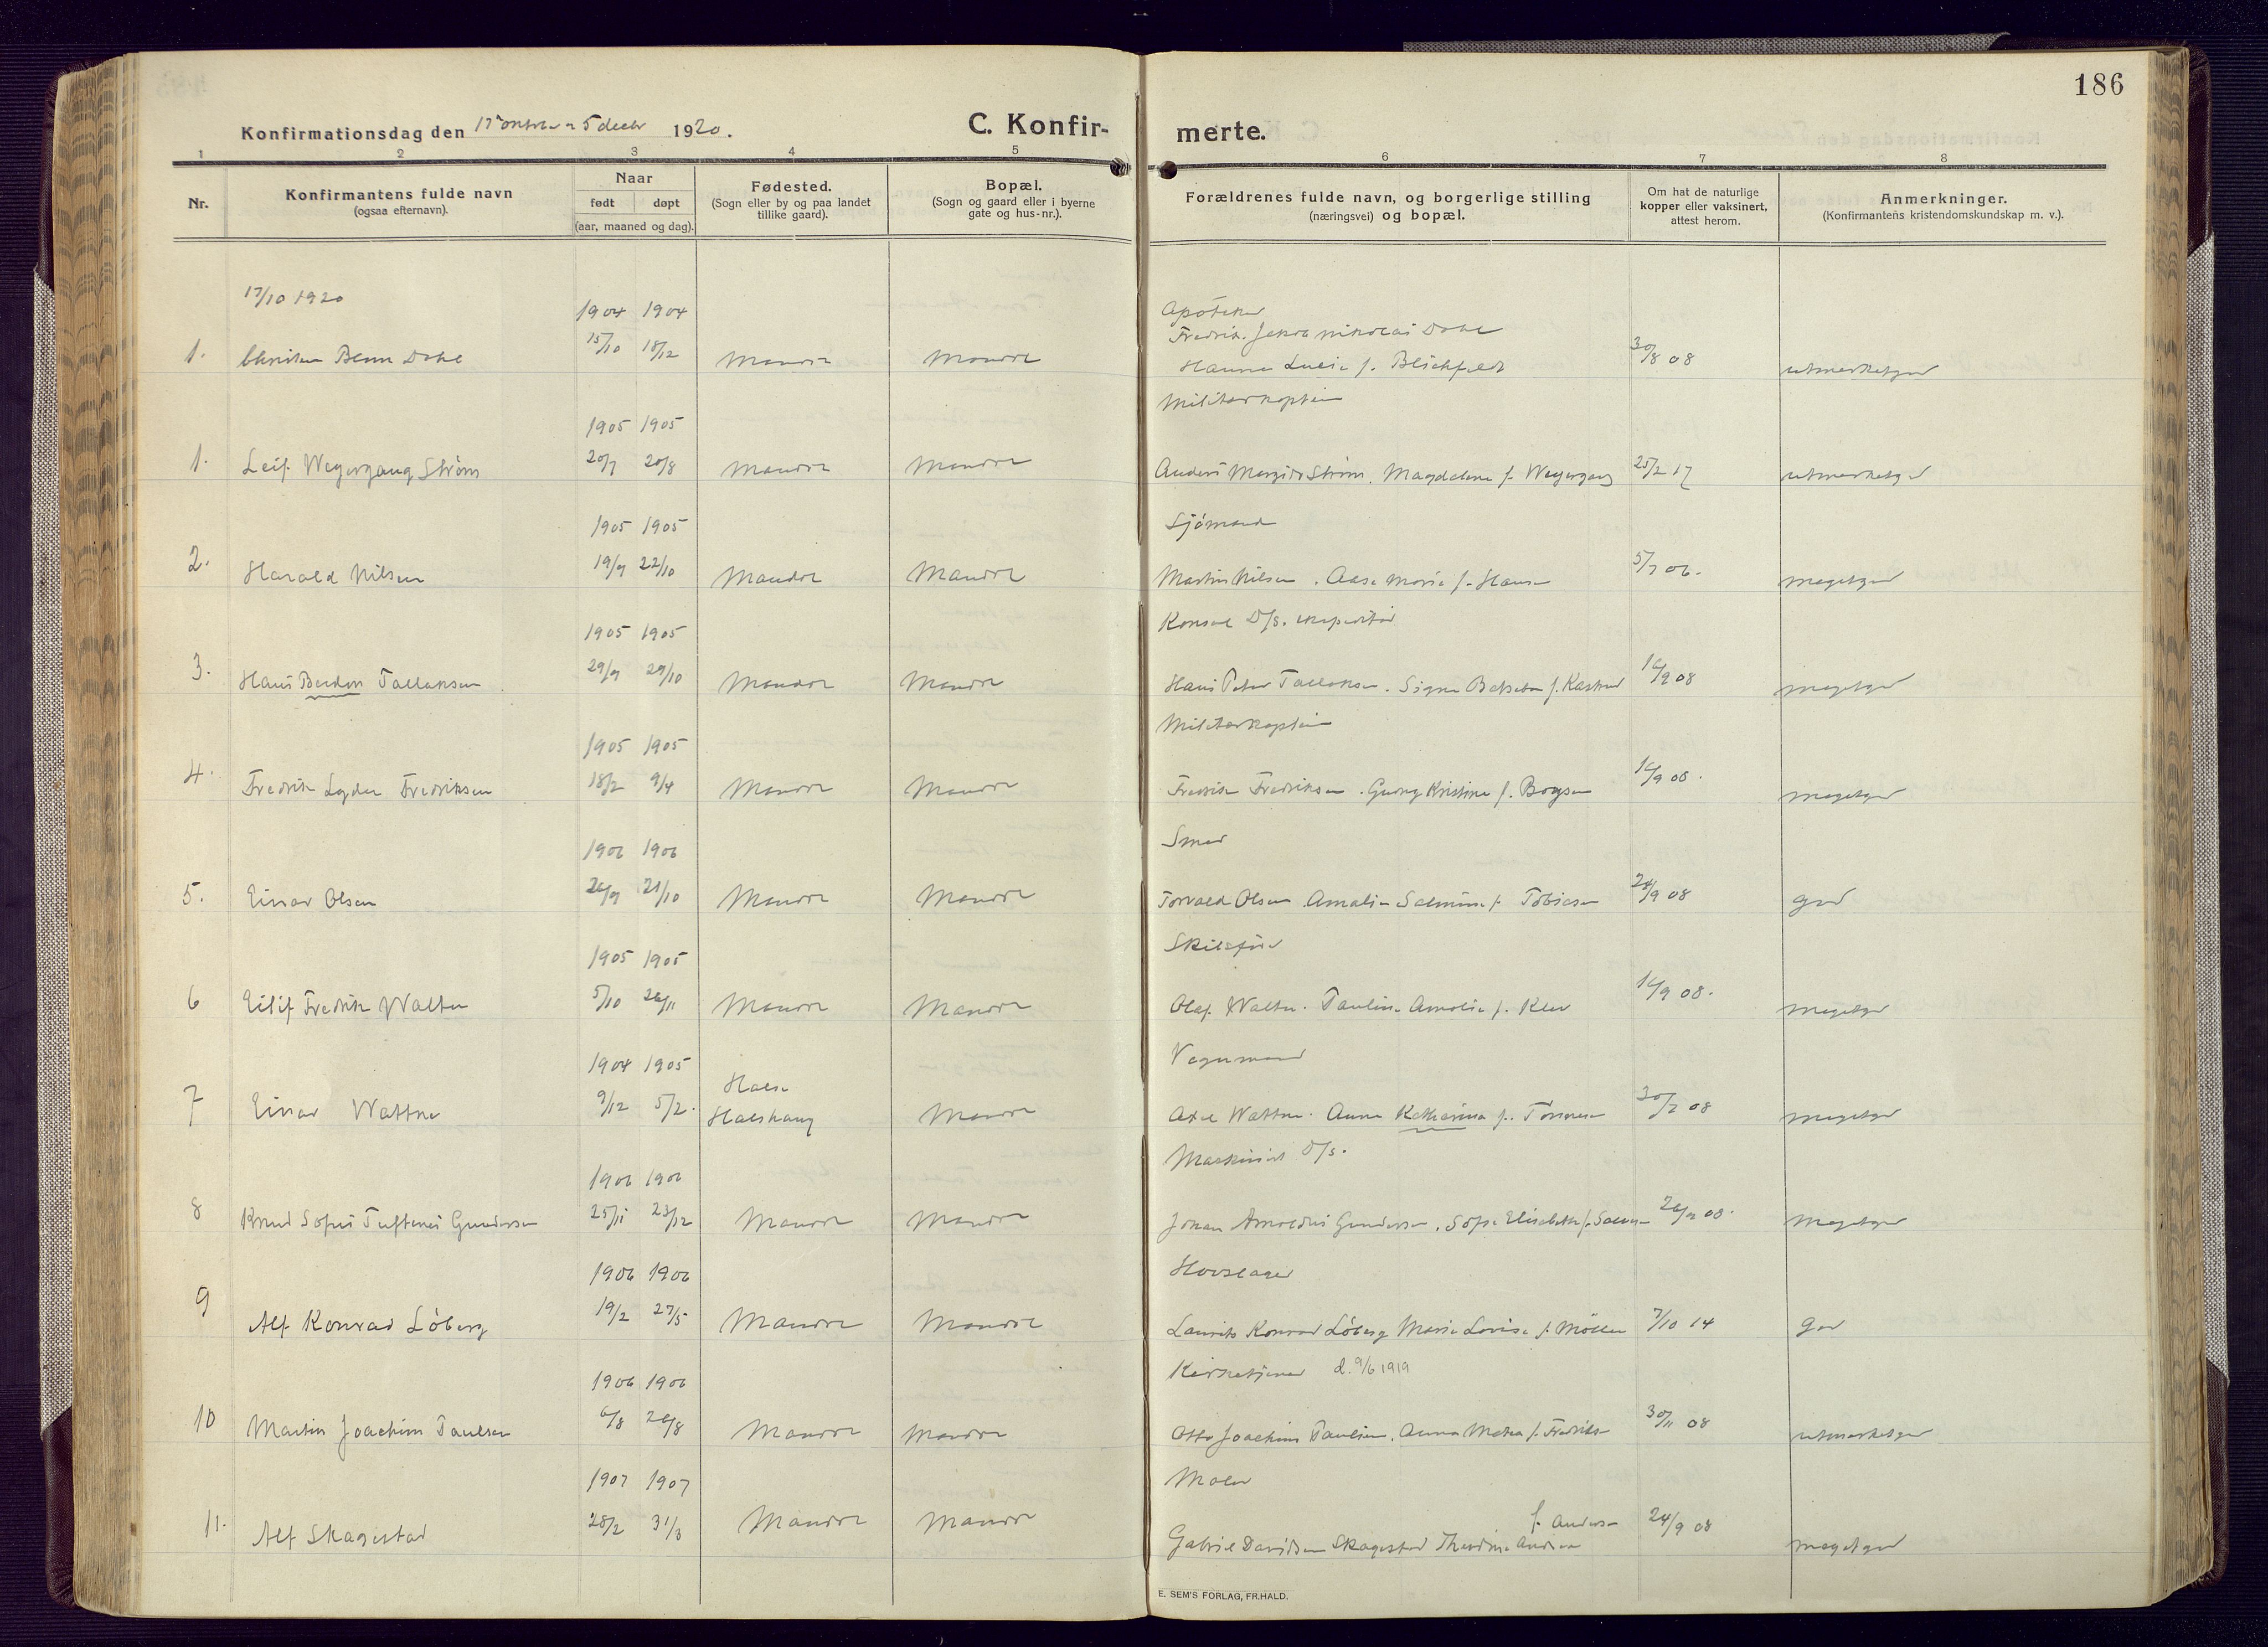 186
Konfirmationsdag den 17 oktober & 5 decbr 1920.
C. Konfir-
merte.
1 2 3 4 5 6 7 8
Nr.
Konfirmantens fulde navn
(ogsaa efternavn).
Naar
født døpt
(aar, maaned og dag).
Fødested.
(Sogn eller by og paa landet
tillike gaard).
Bopæl.
(Sogn og gaard eller i byerne
gate og hus-nr.).
Forældrenes fulde navn, og borgerlige stilling
(næringsvei) og bopæl.
Om hat de naturlige
kopper eller vaksinert,
attest herom.
Anmerkninger.
(Konfirmantens kristendomskundskap m. v.).
17/10 1920
1904 1904
Apoteker
Fredrik Jakob Nikolai Dahl
1. Christen Benn Dahl 15/10 18/12 Mandal Mandal Hanna Lucie f. Blichfeldt 30/8 08 utmerketgod
Militærkaptein
1905 1905
1. Leif Weyergang Strøm 20/7 20/8 Mandal Mandal Anders Strøm. Magdalene f. Weyergang 25/2 17 utmerketgod
1905 1905 Sjómand
2. Harald Nilsen 19/9 22/10 Mandal Mandal Martin Nilsen. Aase Marie f. Hansen 5/7 06. megetgod
1905 1905 Konsul D/s. expeditør
3. Hans Tallaksen 29/9 29/10 Mandal Mandal Hans Peter Tallaksen. Signe f. 16/9 08 megetgod
1905 1905 Militærkaptein
4. Fredrik Lyder Fredriksen 18/2 9/4 Mandal Mandal Fredrik Fredriksen. Kristine f. 16/9 08. megetgod
1906 1906 Smed
5. Einar Olsen 26/9 21/10 Mandal Mandal Torvald Olsen. Amalie Salmine f. Tobiasen 24/9 08 god
1905 1905 Skibsfører
6 Eilif Fredrik Walter 5/10 26/11 Mandal Mandal Olaf Walter. Pauline Amalie f. Klev 16/9 08. megetgod
1904 1905 Halse Vognmand
7 Einar Wattne 9/12 5/2. Halshaug Mandal Axel Wattne. Anna Katharina f. Tønnesen 30/7 08 megetgod
1906 1906 Maskinist D/s.
8 Knud Sofus Tuftenes Gundersen 25/11 23/12 Mandal Mandal Johan Arnoldus Gundersen. Sofie Elisabeth f. Salvesen 26/9 08. megetgod
1906 1906 Hovslager
9 Alf Konrad Lóberg 19/2 27/5 Mandal Mandal Laurits Konrad Lóberg Marie Lovise f. Møller 7/10 14 god
1906 1906 Kirketjener d. 9/6 1919
10 Martin Joachim Paulsen 6/8 26/8 Mandal Mandal Otto Joachim Paulsen. Anna f. Fredriksen 30/11 08 utmerketgod
1907 1907 Maler
11. Alf Skagestad 28/2 31/3 Mandal Mandal Gabriel Davidsen Skagestad Theodine Andrea f. Andersen 24/9 08 megetgod
E. SEM'S FORLAG, FR.HALD.